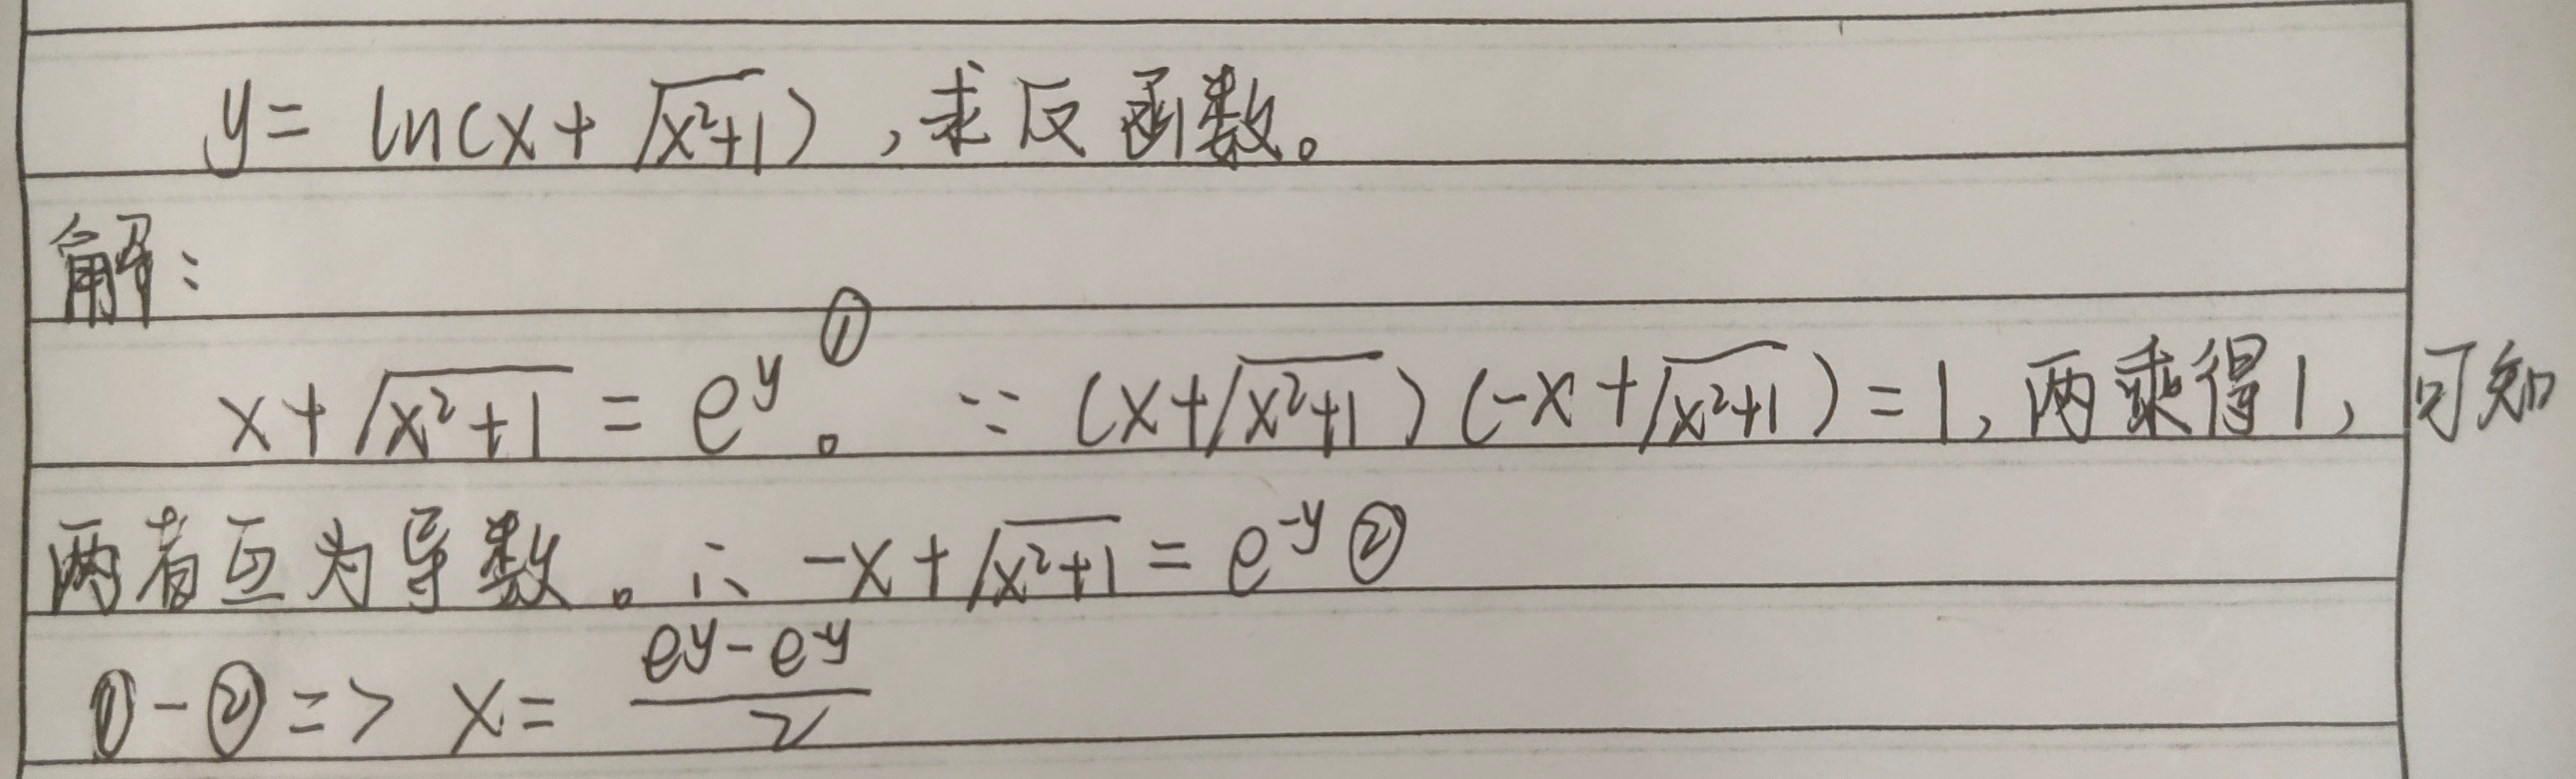 y = ln(x + √(x²+1)),求反函数。
解:
x + √(x²+1) = e^y ①。∵ (x+√(x²+1))(-x+√(x²+1)) = 1,两乘得1,可知
两者互为导数。∴ -x + √(x²+1) = e^-y ②
① - ② => x = (e^y - e^-y)/2